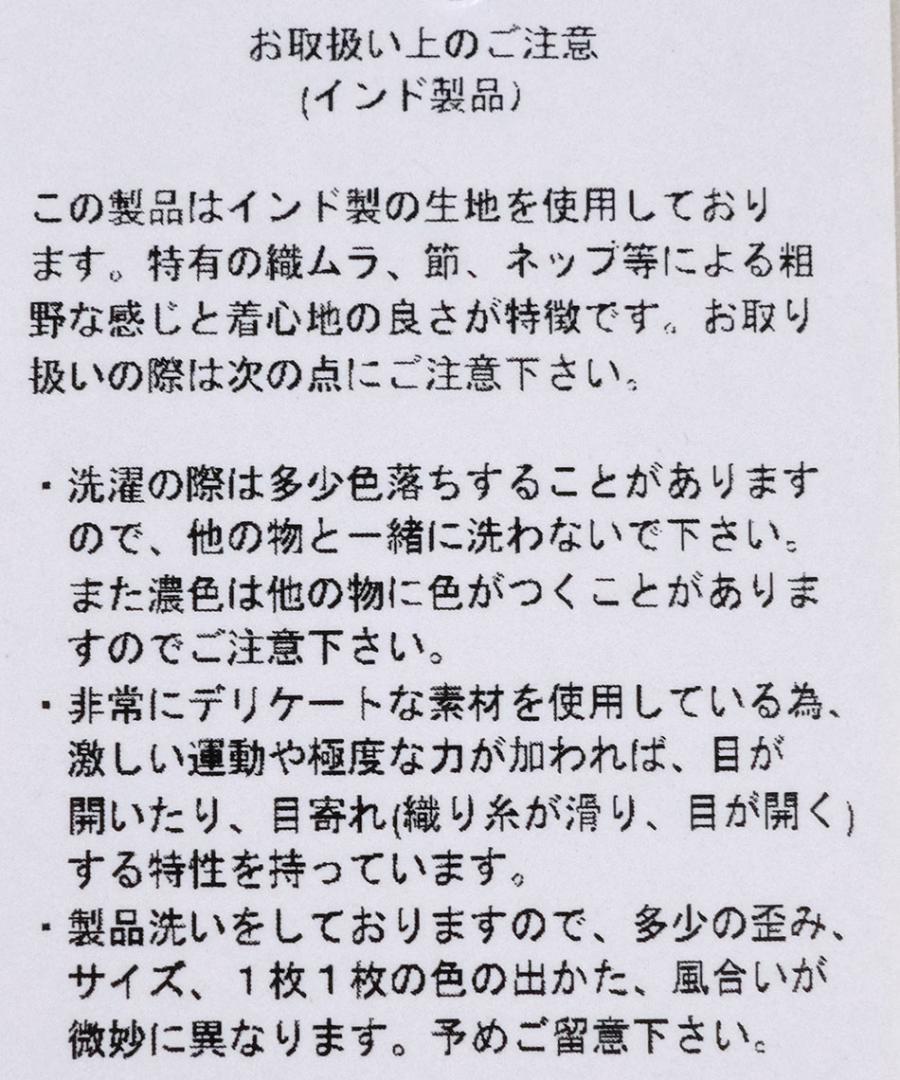 お取扱い上のご注意
(インド製品)
この製品はインド製の生地を使用しており
ます。特有の織ムラ、節、ネップ等による粗
野な感じと着心地の良さが特徴です。お取り
扱いの際は次の点にご注意下さい。
・洗濯の際は多少色落ちすることがあります
ので、他の物と一緒に洗わないで下さい。
また濃色は他の物に色がつくことがありま
すのでご注意下さい。
・非常にデリケートな素材を使用している為、
激しい運動や極度な力が加われば、目が
開いたり、目寄れ(織り糸が滑り、目が開く)
する特性を持っています。
・製品洗いをしておりますので、多少の歪み、
サイズ、1枚1枚の色の出かた、風合いが
微妙に異なります。予めご留意下さい。